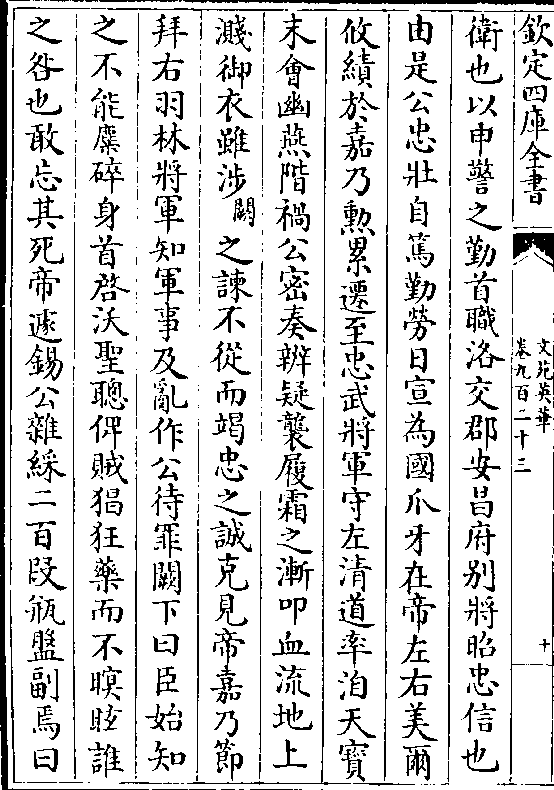 欽定四庫全書
文苑英華
卷九百二十三
十
衛也以申警之勤首職洛交郡安昌府别將昭忠信也
由是公忠壯自篤勤勞日宣為國爪牙在帝左右美爾
攸績於嘉乃勲累遷至忠武將軍守左清道率洎天寶
末㑹幽燕階禍公密奏辨疑襲履霜之漸叩血流地上
濺御衣雖涉闕之諫不從而竭忠之誠克見帝嘉乃節
拜右羽林將軍知軍事及亂作公待罪闕下曰臣始知
之不能麋碎身首啓沃聖聰俾賊猖狂藥而不瞑眩誰
之咎也敢忘其死帝遽錫公雜綵二百段瓶盤副焉曰